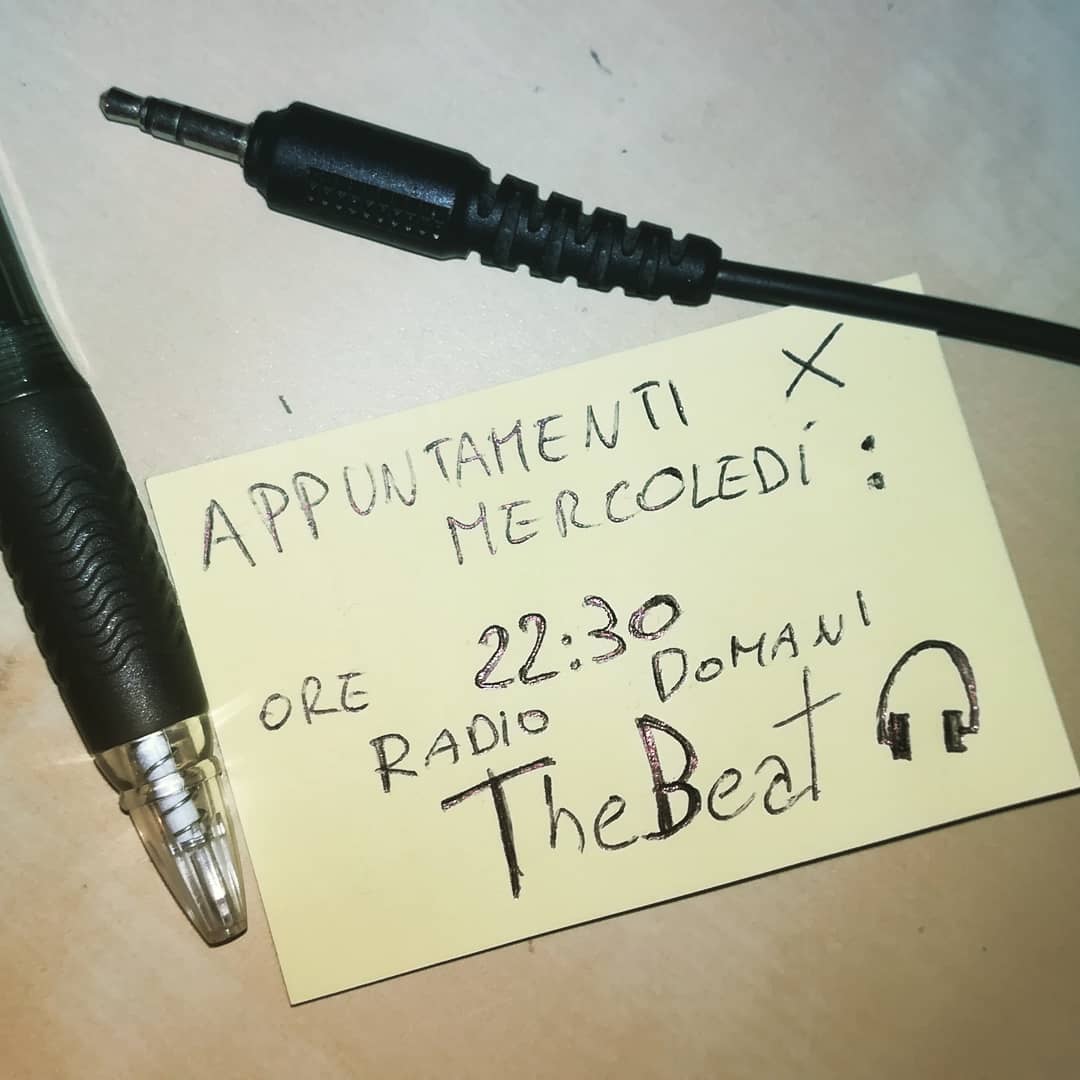 APPUNTAMENTI X
MERCOLEDÍ :
ORE 22:30
RADIO DOMANI
TheBeat